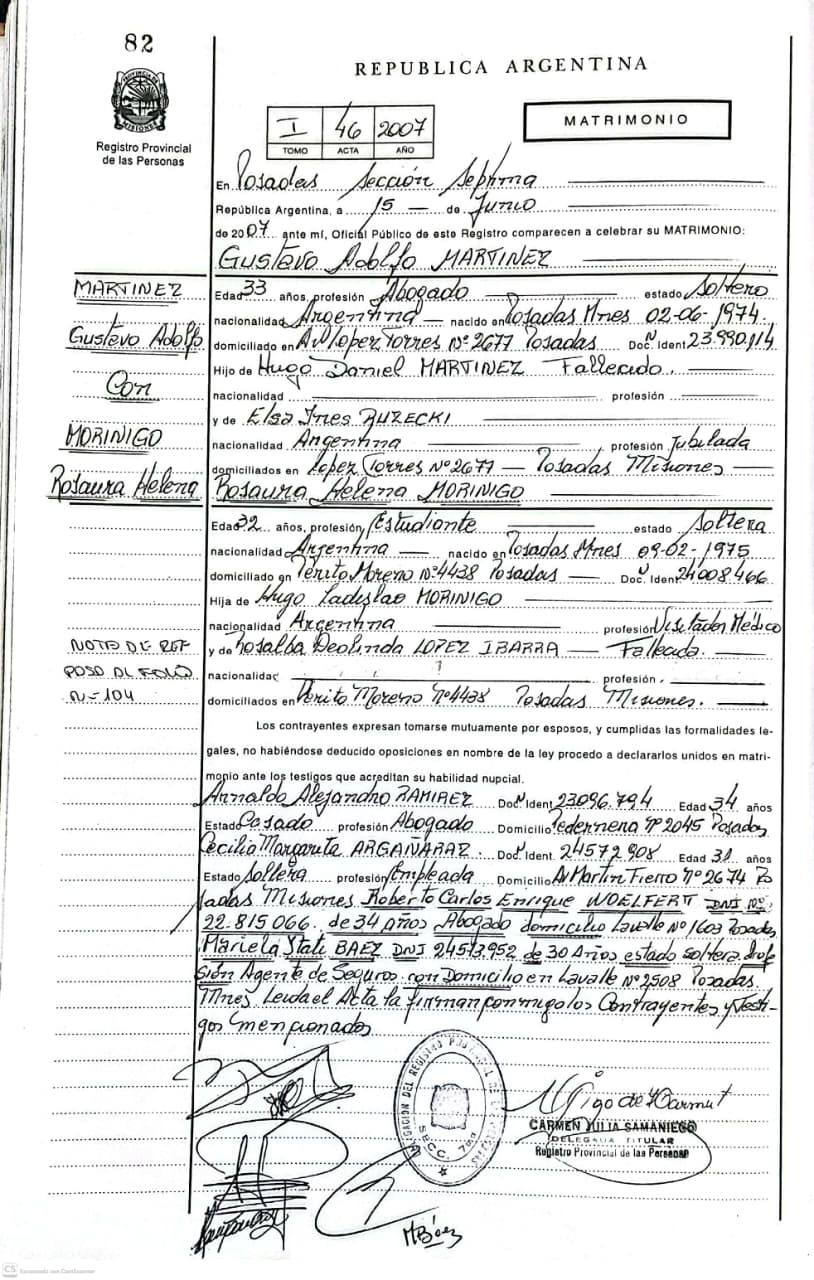 82
REPUBLICA ARGENTINA
PROVINCIA DE MISIONES
Registro Provincial
de las Personas
I 46 2007
TOMO ACTA AÑO
MATRIMONIO
En Posadas Sección Septima
República Argentina, a 15 de Junio
de 2007 ante mí, Oficial Público de este Registro comparecen a celebrar su MATRIMONIO:
Gustavo Adolfo MARTINEZ
MARTINEZ
Gustavo Adolfo
Con
MORINIGO
Rosaura Helena
Edad 33 años, profesión Abogado estado Soltero
nacionalidad Argentina nacido en Posadas Mnes 02-06-1974.
domiciliado en Av Lopez Torres Nº 2677 Posadas Doc. Ident 23.990.114
Hijo de Hugo Daniel MARTINEZ Fallecido.
nacionalidad profesión
y de Elsa Ines RUZECKI
nacionalidad Argentina profesión Jubilada
domiciliados en Lopez Torres Nº 2677 — Posadas Misiones
Rosaura Helena MORINIGO
Edad 32 años, profesión Estudiante estado Soltera
nacionalidad Argentina nacido en Posadas Mnes 09-02-1975
domiciliado en Perito Moreno Nº 4438 Posadas Doc. Ident 24008466
Hija de Hugo Ladislao MORINIGO
nacionalidad Argentina profesión Visitador Médico
y de Rosalda Deolinda LOPEZ IBARRA — Fallecida.
nacionalidad profesión
domiciliados en Perito Moreno Nº 4438 Posadas Misiones.
NOTA DE REF
PASO AL FOLIO
N= 104
Los contrayentes expresan tomarse mutuamente por esposos, y cumplidas las formalidades le-
gales, no habiéndose deducido oposiciones en nombre de la ley procedo a declararlos unidos en matri-
monio ante los testigos que acreditan su habilidad nupcial.
Arnaldo Alejandro RAMIREZ Doc. Ident 23096.794 Edad 34 años
Estado Casado profesión Abogado Domicilio Pedernera Nº 2045 Posadas
Cecilia Margarita ARGAÑARAZ. Doc. Ident. 24572908 Edad 31 años
Estado Soltera profesión Empleada Domicilio Av Martin Fierro Nº 2674 Po
sadas Misiones Roberto Carlos Enrique WOELFERT DNI Nº:
22.815.066. de 34 Años Abogado domicilio Lavalle Nº 1603 Posadas
Mariela Stati BAEZ DNI 24573.952 de 30 Años estado soltera profe
sión Agente de Seguros con Domicilio en Lavalle Nº 2508 Posadas
Mnes Leida el Acta la firman conmigo los Contrayentes y Testi-
gos mencionados
DELEGACION DEL REGISTRO PROVINCIAL DE LAS PERSONAS
SECC. 7ma
CARMEN JULIA SAMANIEGO
DELEGADA TITULAR
Registro Provincial de las Personas
MBáez
CS Escaneado con CamScanner